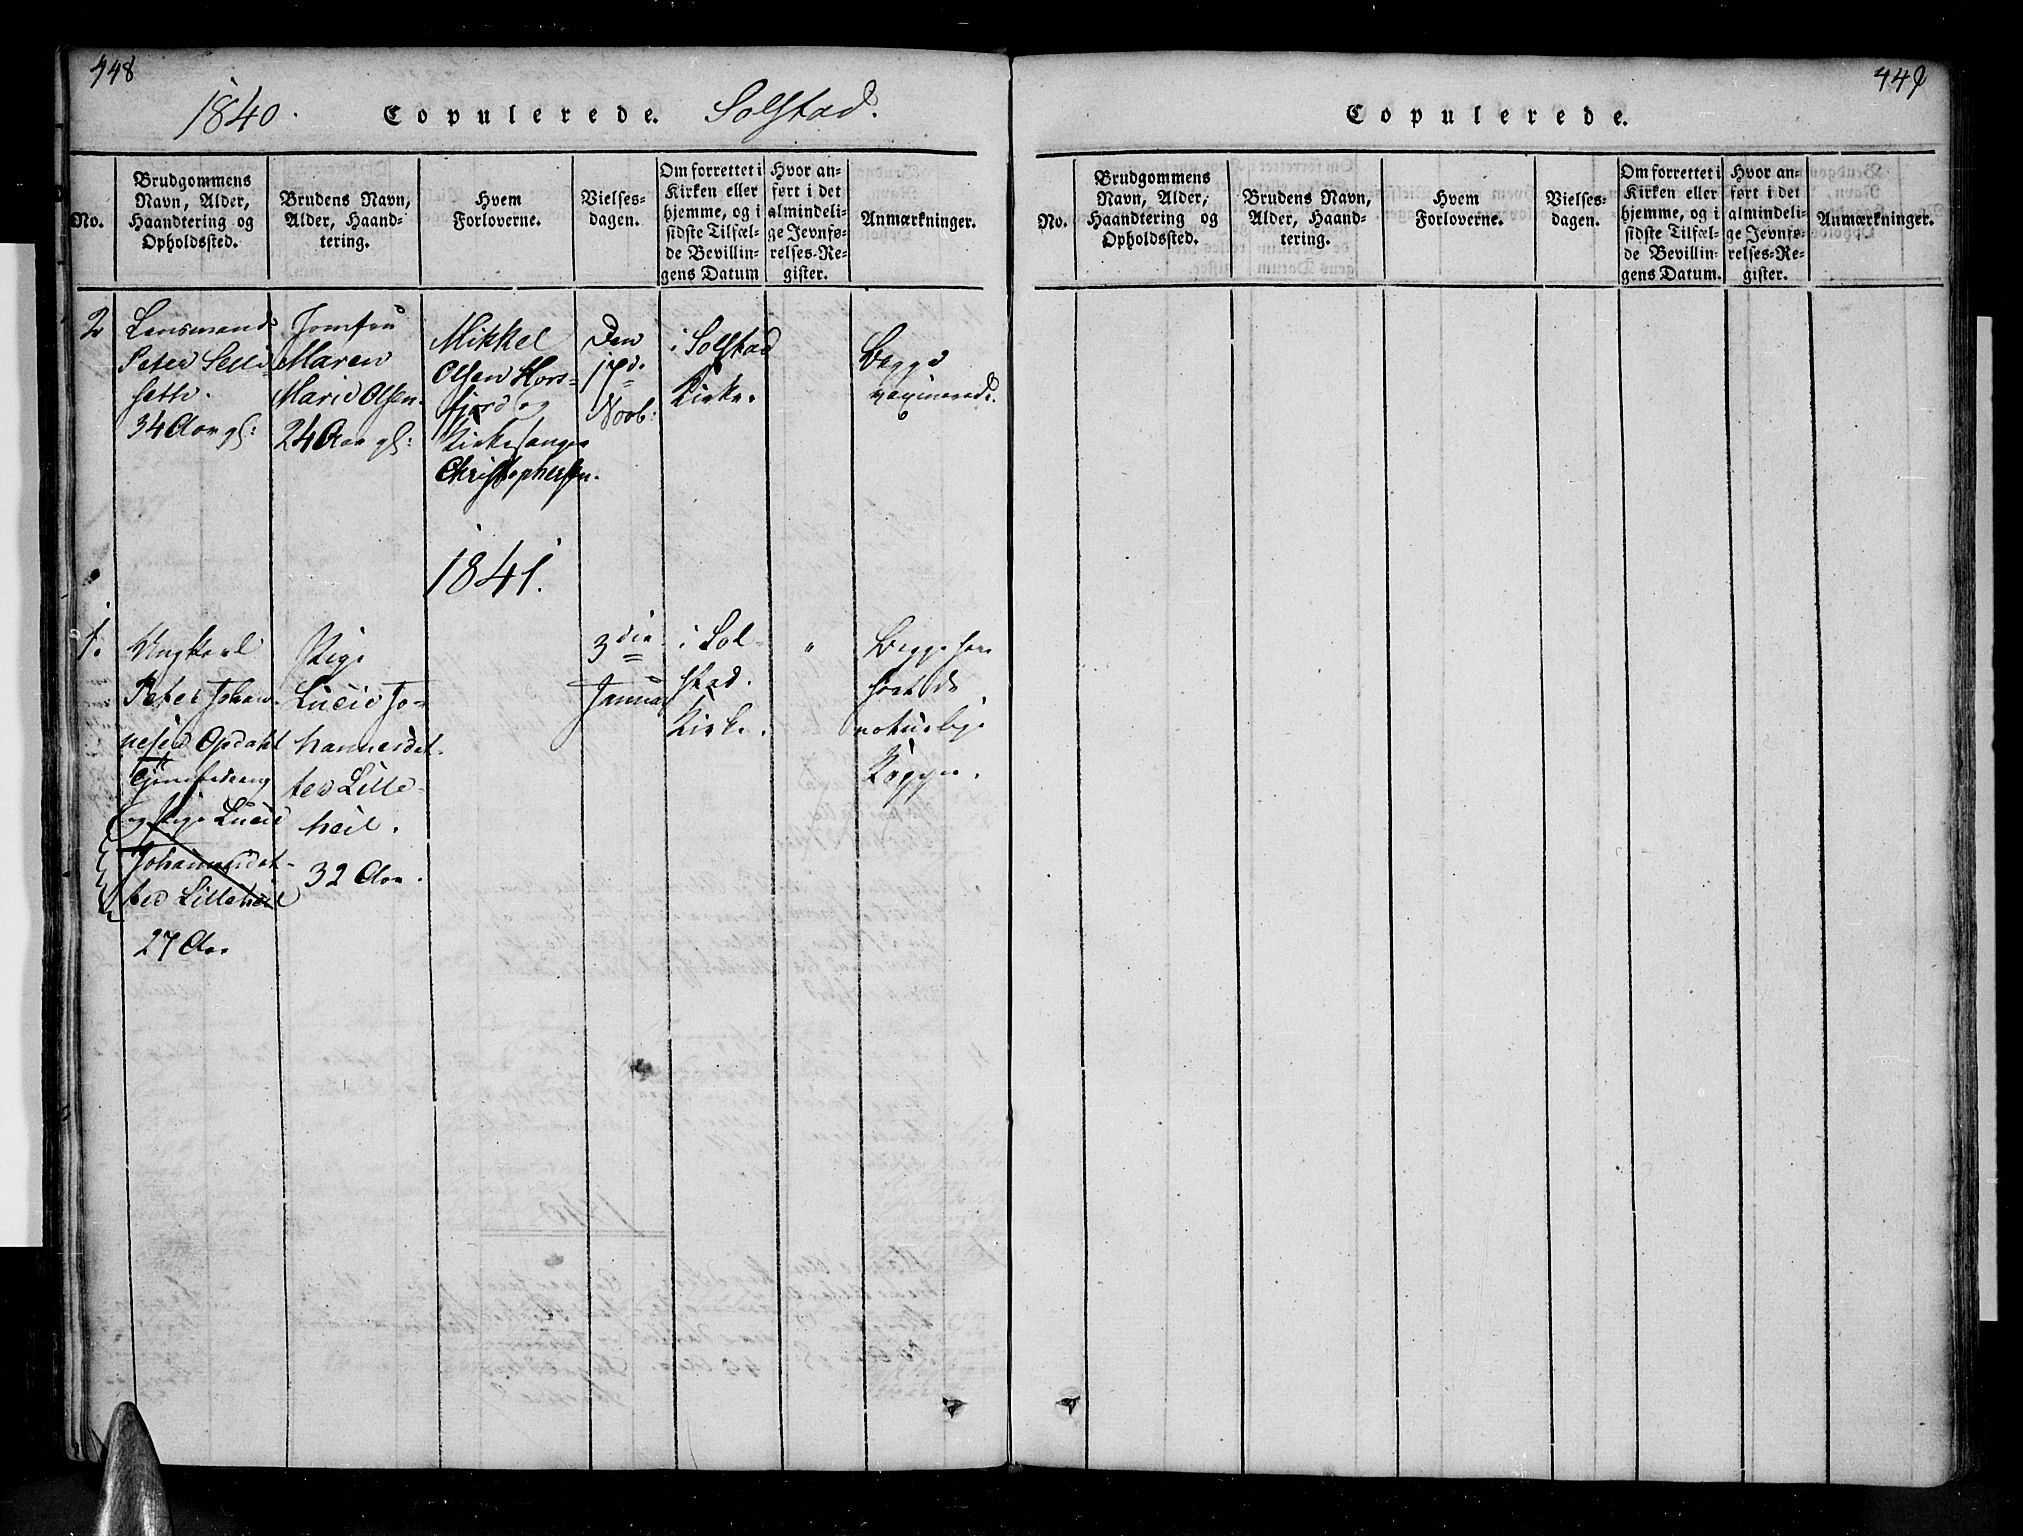 448
1840.
Copulerede.
Solstad.
No.
Brudgommens
Navn, Alder,
Haandtering og
Opholdssted.
Brudens Navn,
Alder, Haand-
tering.
Hvem
Forloverne.
Vielses-
dagen.
Om forrettet i
Kirken eller
hjemme, og i
sidste Tilfæl-
de Bevillin-
gens Datum
Hvor an-
ført i det
almindeli-
ge Jevnfø-
relses-Re-
gister.
Anmærkninger.
2
Lensmand
Peter Selli
seth.
34 Aar gl:
Jomfru
Maren
Marie Olsen.
24 Aar gl:
Mikkel
Olsen Hors-
fjord og
Kirkesanger
Christophersen.
Den
Novb:
i Solstad
Kirke.
Begge
vaccinerede.
1841.
1.
Ungkarl
Peter Johan-
nesen Opdahl
og Pige Lucie
Johannesdat-
ter Lilleheil
27 Aar
Pige
Lucie Jo-
hannesdat-
ter Lille-
heil.
32 Aar.
3die
Januar
i Sol-
stad.
Kirke.
"
Begge have
havt de
naturlige
Kopper.
449
Copulerede.
No.
Brudgommens
Navn, Alder,
Haandtering og
Opholdssted.
Brudens Navn,
Alder, Haand-
tering.
Hvem
Forloverne.
Vielses-
dagen.
Om forrettet i
Kirken eller
hjemme, og i
sidste Tilfæl-
de Bevillin-
gens Datum.
Hvor an-
ført i det
almindeli-
ge Jevnfø-
relses-Re-
gister.
Anmærkninger.